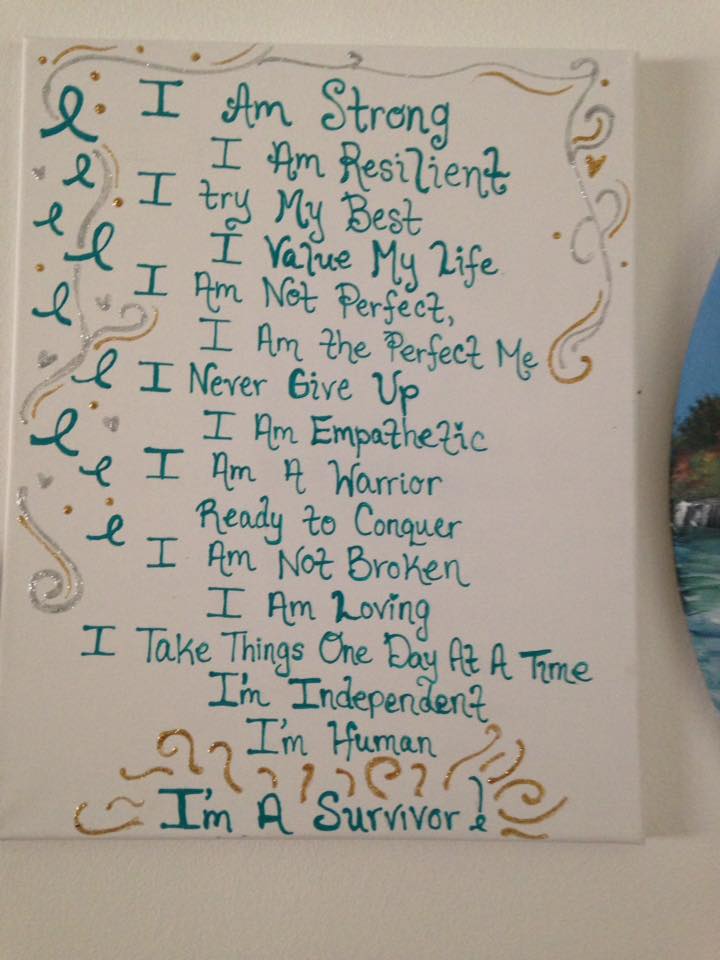 I Am Strong
I Am Resilient
I try My Best
I Value My Life
I Am Not Perfect,
I Am the Perfect Me
I Never Give Up
I Am Empathetic
I Am A Warrior
Ready to Conquer
I Am Not Broken
I Am Loving
I Take Things One Day At A Time
I'm Independent
I'm Human
I'm A Survivor!